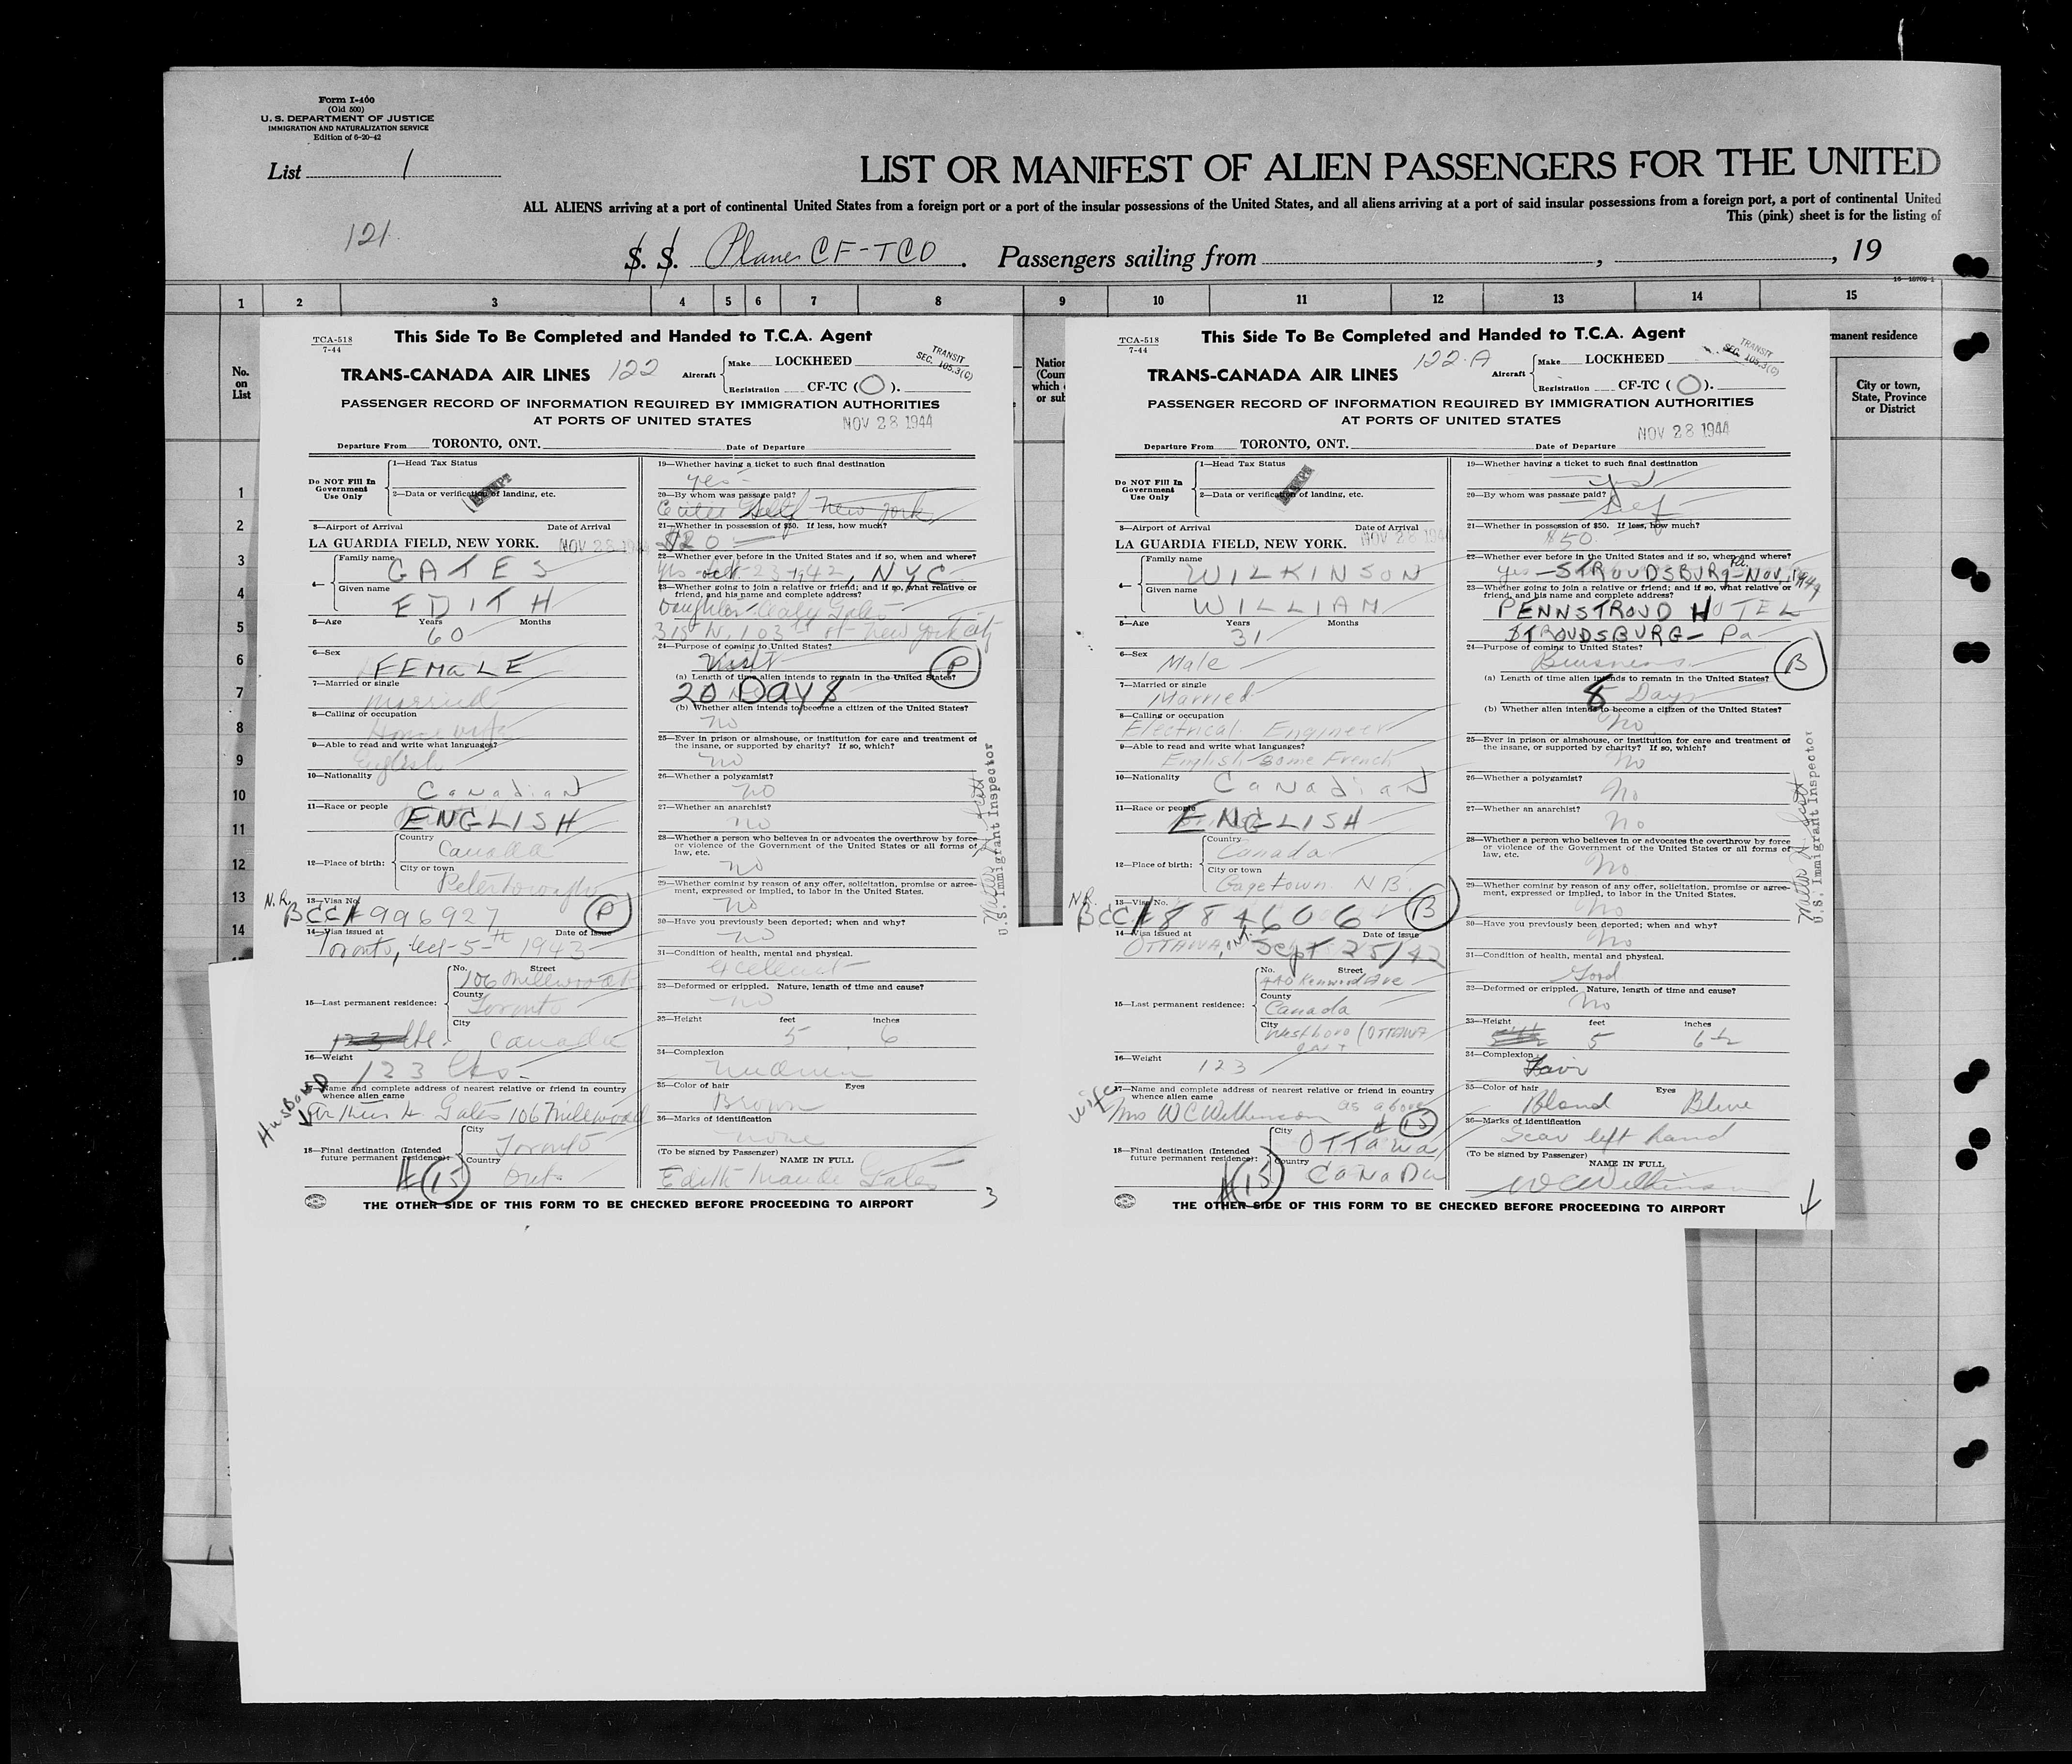 Form I-400
(Old 500)
U. S. DEPARTMENT OF JUSTICE
IMMIGRATION AND NATURALIZATION SERVICE
Edition of 6-20-42
List 1
121
LIST OR MANIFEST OF ALIEN PASSENGERS FOR THE UNITED
ALL ALIENS arriving at a port of continental United States from a foreign port or a port of the insular possessions of the United States, and all aliens arriving at a port of said insular possessions from a foreign port, a port of continental United
This (pink) sheet is for the listing of
S. S. Plane CF-TCO . Passengers sailing from , , 19
1 2 3 4 5 6 7 8 9 10 11 12 13 14 15
No. on List
1
2
3
4
5
6
7
8
9
10
11
12
13
14
This Side To Be Completed and Handed to T.C.A. Agent
TCA-518
7-44
TRANS-CANADA AIR LINES 122
Aircraft Make LOCKHEED
Registration CF-TC (O).
TRANSIT
SEC. 105.3(C)
PASSENGER RECORD OF INFORMATION REQUIRED BY IMMIGRATION AUTHORITIES
AT PORTS OF UNITED STATES
NOV 28 1944
Departure From TORONTO, ONT. Date of Departure
Do NOT Fill In Government Use Only
1—Head Tax Status
2—Data or verification of landing, etc.
EXEMPT
3—Airport of Arrival Date of Arrival
LA GUARDIA FIELD, NEW YORK. NOV 28 1944
4— Family name GATES
Given name EDITH
5—Age Years Months
60
6—Sex
FEMALE
7—Married or single
Married
8—Calling or occupation
Housewife
9—Able to read and write what languages?
English
10—Nationality
Canadian
11—Race or people
ENGLISH
12—Place of birth: Country
Canada
City or town
Peterborough
N.R.
13—Visa No.
BCC # 996927 (P)
14—Visa issued at Date of Issue
Toronto, Oct-5-th 1943
15—Last permanent residence: No. Street
106 Millwood
County
Toronto
City
Canada
16—Weight
123 lbs
HUSBAND
17—Name and complete address of nearest relative or friend in country whence alien came
Arthur H. Gates 106 Millwood
18—Final destination (Intended future permanent residence): City
Toronto
Country
Ont
# (15)
19—Whether having a ticket to such final destination
yes
20—By whom was passage paid?
Self New York
21—Whether in possession of $50. If less, how much?
$20
22—Whether ever before in the United States and if so, when and where?
yes Oct-23-1942, NYC
23—Whether going to join a relative or friend; and if so, what relative or friend, and his name and complete address?
Daughter Gates
315 N. 103rd st New York City
24—Purpose of coming to United States?
Visit (P)
(a) Length of time alien intends to remain in the United States?
20 Days
(b) Whether alien intends to become a citizen of the United States?
no
25—Ever in prison or almshouse, or institution for care and treatment of the insane, or supported by charity? If so, which?
no
26—Whether a polygamist?
no
27—Whether an anarchist?
no
28—Whether a person who believes in or advocates the overthrow by force or violence of the Government of the United States or all forms of law, etc.
no
29—Whether coming by reason of any offer, solicitation, promise or agreement, expressed or implied, to labor in the United States.
no
30—Have you previously been deported; when and why?
no
31—Condition of health, mental and physical.
excellent
32—Deformed or crippled. Nature, length of time and cause?
no
33—Height feet inches
5 6
34—Complexion
Medium
35—Color of hair Eyes
Brown
36—Marks of identification
none
(To be signed by Passenger) NAME IN FULL
Edith Maude Gates
3
U.S. Immigrant Inspector
THE OTHER SIDE OF THIS FORM TO BE CHECKED BEFORE PROCEEDING TO AIRPORT
This Side To Be Completed and Handed to T.C.A. Agent
TCA-518
7-44
TRANS-CANADA AIR LINES 122-A
Aircraft Make LOCKHEED
Registration CF-TC (O).
TRANSIT
SEC. 105.3(C)
PASSENGER RECORD OF INFORMATION REQUIRED BY IMMIGRATION AUTHORITIES
AT PORTS OF UNITED STATES
NOV 28 1944
Departure From TORONTO, ONT. Date of Departure
Do NOT Fill In Government Use Only
1—Head Tax Status
2—Data or verification of landing, etc.
EXEMPT
3—Airport of Arrival Date of Arrival
LA GUARDIA FIELD, NEW YORK. NOV 28 1944
4— Family name
WILKINSON
Given name
WILLIAM
5—Age Years Months
31
6—Sex
Male
7—Married or single
Married
8—Calling or occupation
Electrical Engineer
9—Able to read and write what languages?
English Some French
10—Nationality
Canadian
11—Race or people
ENGLISH
12—Place of birth: Country
Canada
City or town
Gagetown NB.
N.R.
13—Visa No.
BCC # 884606 (B)
14—Visa issued at Date of Issue
OTTAWA, Ont. Sept 25/42
15—Last permanent residence: No. Street
440 Kenwood Ave
County
Canada
City
Westboro (OTTAWA
ONT
16—Weight
123
wife
17—Name and complete address of nearest relative or friend in country whence alien came
Mrs WC Wilkinson as above
# (15)
18—Final destination (Intended future permanent residence): City
OTTawa
Country
CaNaDa
# (15)
19—Whether having a ticket to such final destination
yes
20—By whom was passage paid?
Self
21—Whether in possession of $50. If less, how much?
$50
22—Whether ever before in the United States and if so, when and where?
yes—STROUDSBURG Pa.—Nov, 1944
23—Whether going to join a relative or friend; and if so, what relative or friend, and his name and complete address?
PENNSTROUD HOTEL
STROUDSBURG—Pa
24—Purpose of coming to United States?
Business (B)
(a) Length of time alien intends to remain in the United States?
8 Days
(b) Whether alien intends to become a citizen of the United States?
No
25—Ever in prison or almshouse, or institution for care and treatment of the insane, or supported by charity? If so, which?
No
26—Whether a polygamist?
No
27—Whether an anarchist?
No
28—Whether a person who believes in or advocates the overthrow by force or violence of the Government of the United States or all forms of law, etc.
No
29—Whether coming by reason of any offer, solicitation, promise or agreement, expressed or implied, to labor in the United States.
No
30—Have you previously been deported; when and why?
No
31—Condition of health, mental and physical.
Good
32—Deformed or crippled. Nature, length of time and cause?
No
33—Height feet inches
5 6½
34—Complexion
Fair
35—Color of hair Eyes
Blond Blue
36—Marks of identification
Scar left hand
(To be signed by Passenger) NAME IN FULL
WC Wilkinson
4
U.S. Immigrant Inspector
THE OTHER SIDE OF THIS FORM TO BE CHECKED BEFORE PROCEEDING TO AIRPORT
manent residence
City or town, State, Province or District